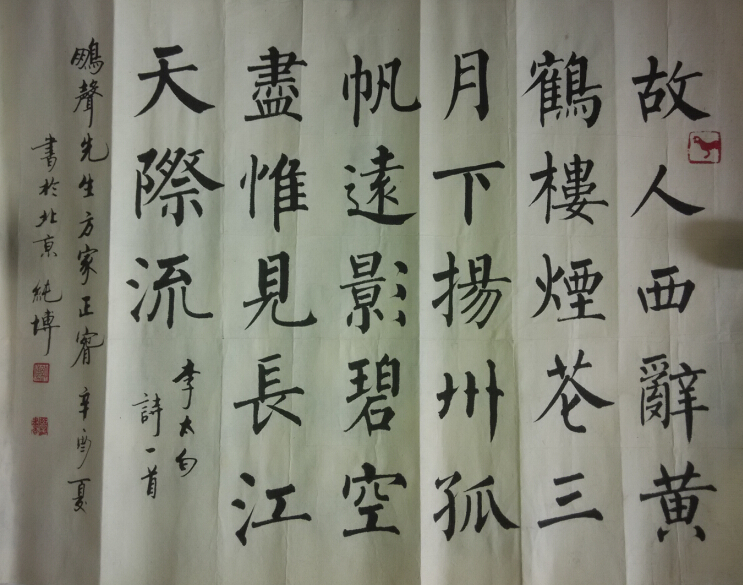 故人西辭黄
鶴樓煙花三
月下揚州孤
帆遠影碧空
盡惟見長江
天際流
李太白
詩一首
鵬聲先生方家正審 辛酉夏
書於北京 純博